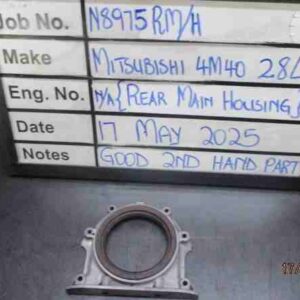 Job No. N8975RM/H
Make MITSUBISHI 4M40 28L
Eng. No. N/A {REAR MAIN HOUSING}
Date 17 MAY 2025
Notes GOOD 2ND HAND PART